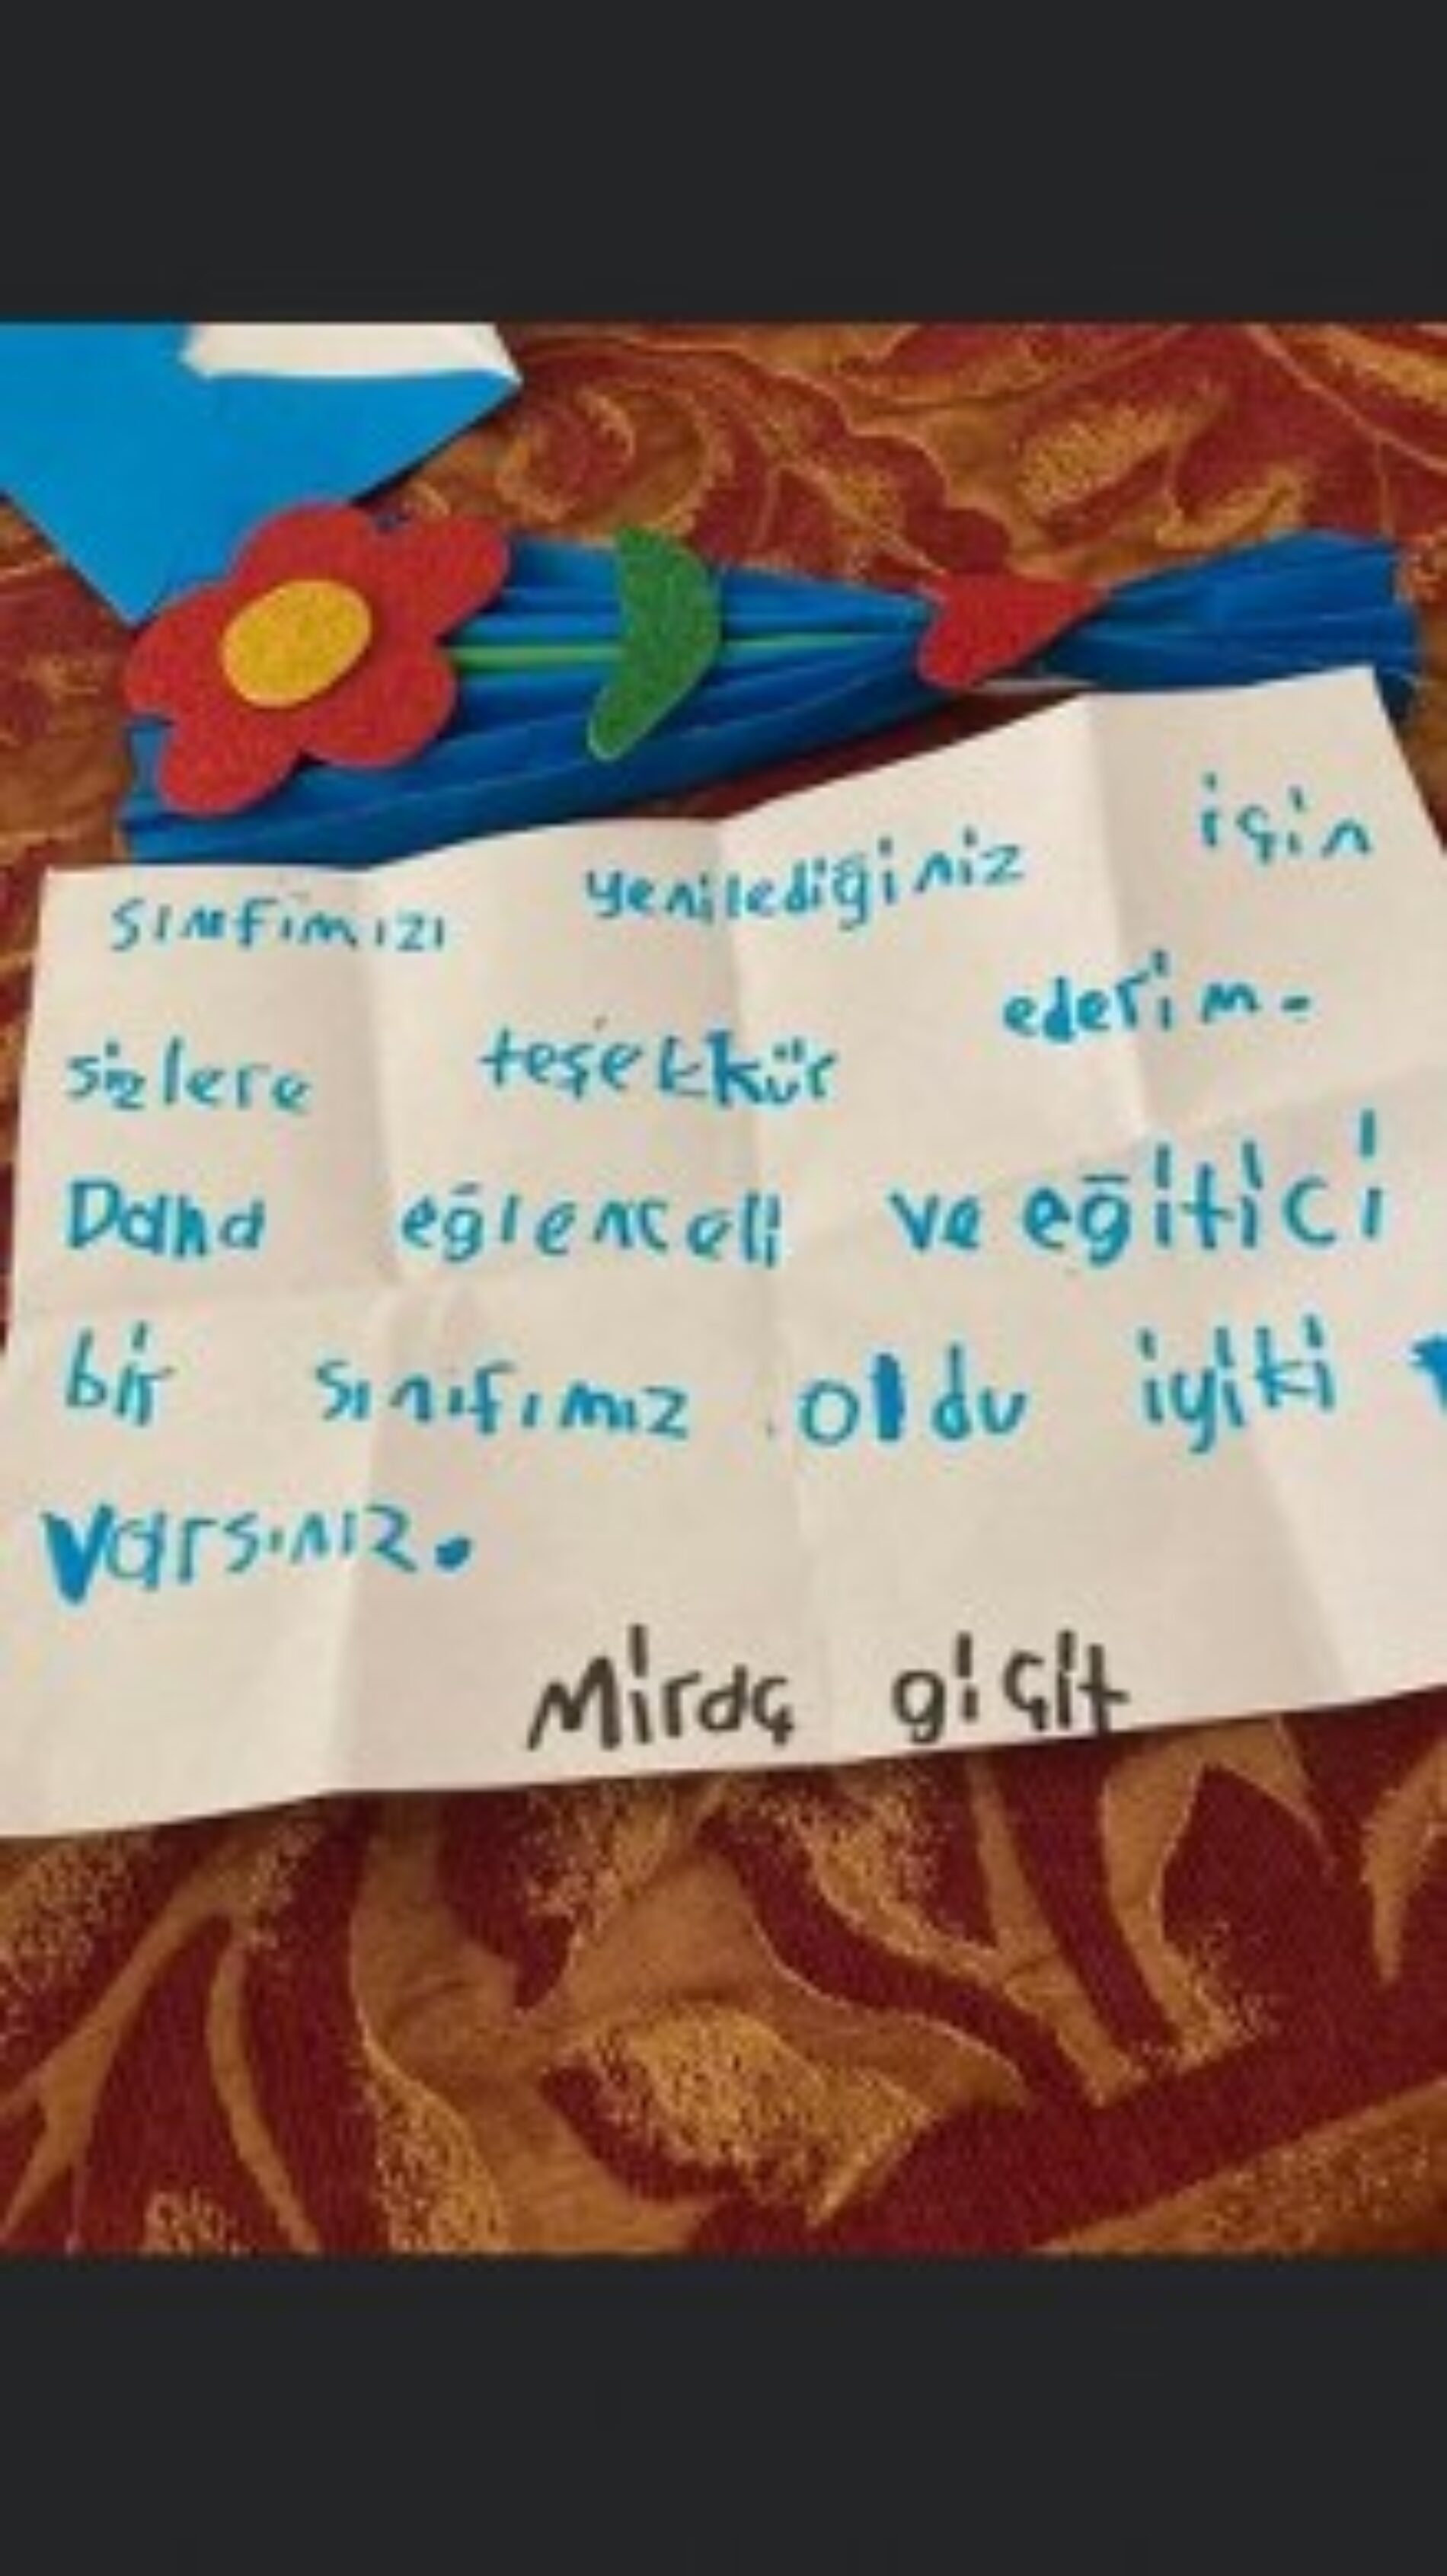 sınıfımızı yenilediğiniz için
sizlere teşekkür ederim.
Daha eğlenceli ve eğitici
bir sınıfımız oldu iyiki
varsınız.
Miraç giçit